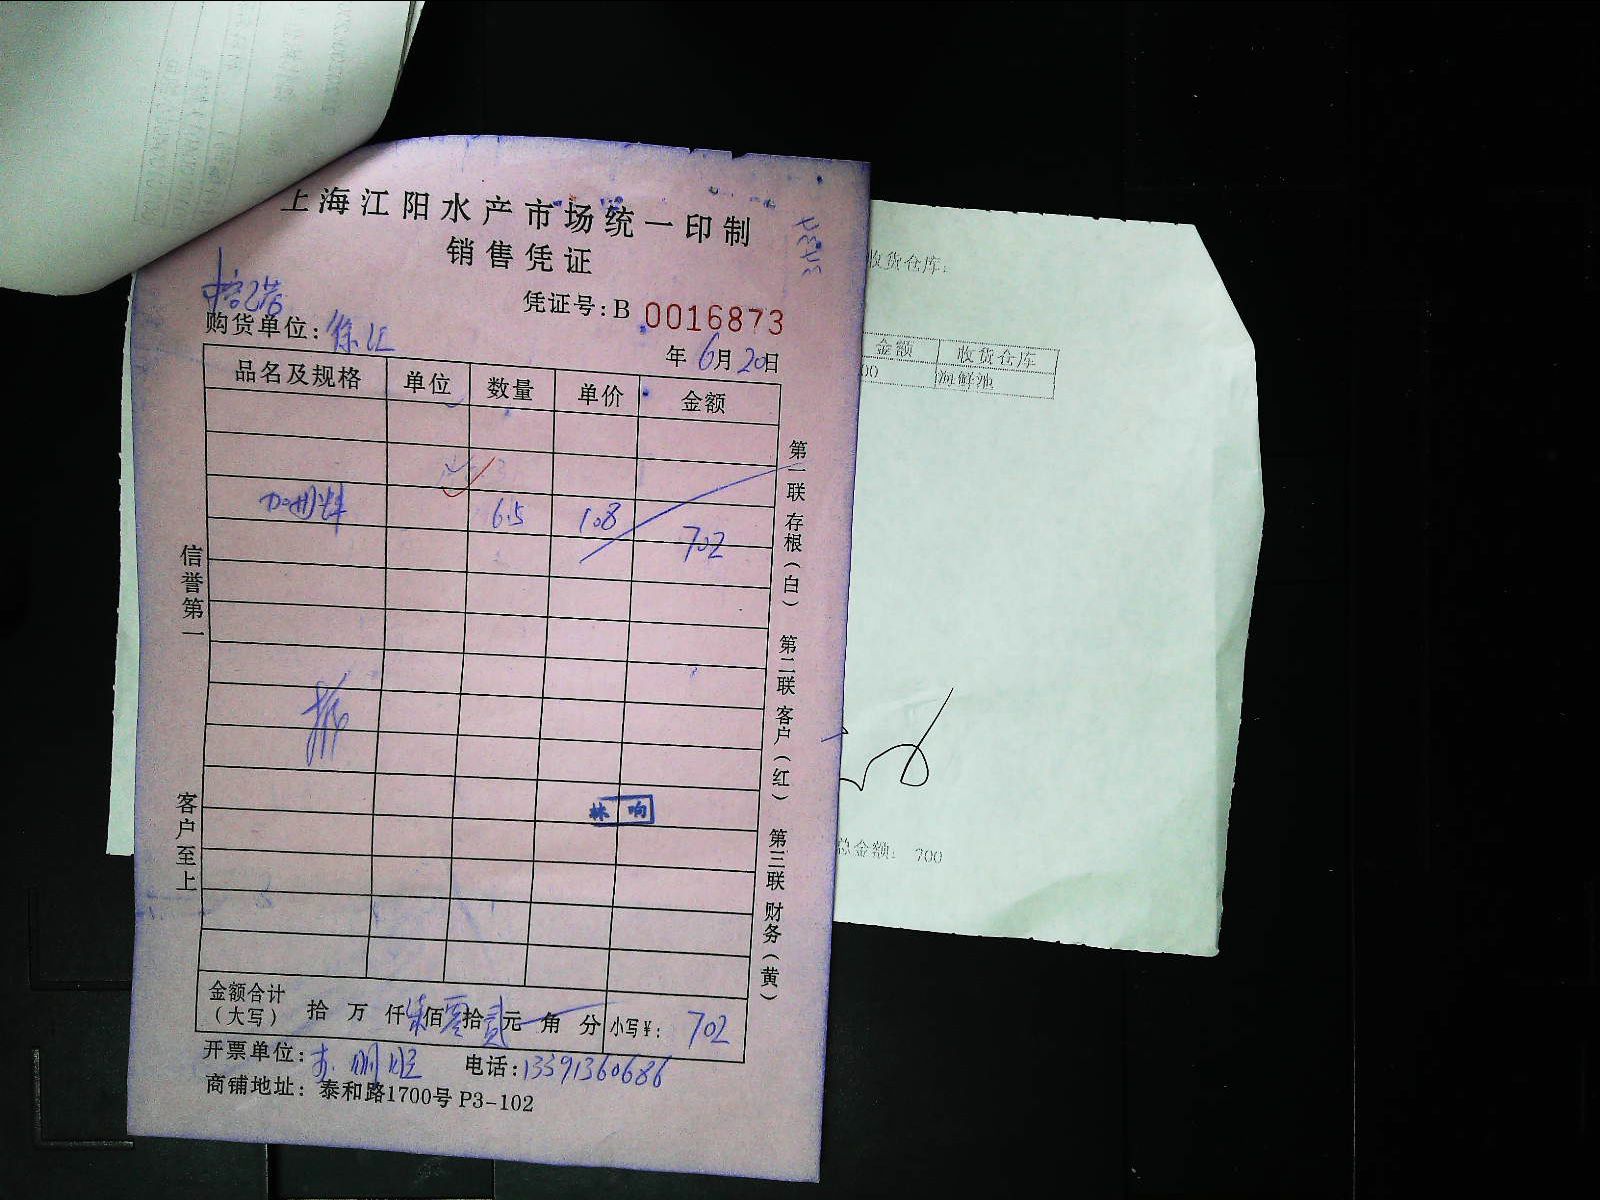 上海江阳水产市场统一印制
销售凭证
凭证号：B 0016873
购货单位：徐汇
年 6月 20日
品名及规格 单位 数量 单价 金额
6.5 108 702
信誉第一
客户至上
第一联 存根（白） 第二联 客户（红） 第三联 财务（黄）
林响
金额合计（大写） 拾 万 仟柒佰零拾贰元 角 分 小写¥： 702
开票单位： 电话：13391360686
商铺地址：泰和路1700号 P3-102
收货仓库：
金额 收货仓库
00 海鲜池
总金额： 700